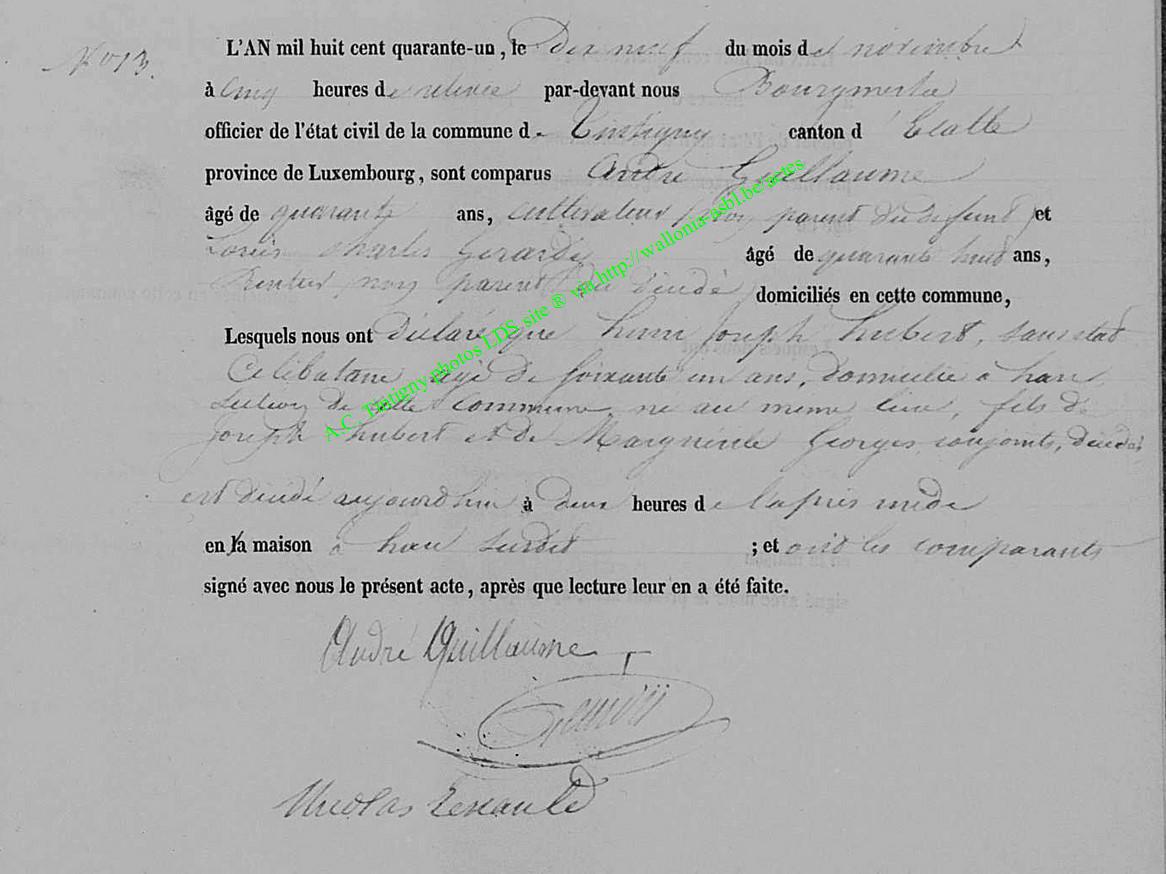 N° 13.
L'AN mil huit cent quarante-un, le Dix neuf du mois de novembre
à Cinq heures de relevée par-devant nous Bourgmestre
officier de l'état civil de la commune de Tintigny canton d' Etalle
province de Luxembourg, sont comparus André Guillaume
âgé de quarante ans, cultivateur, non parent du defunt et
Louis Charles Gerardy âgé de quarante huit ans,
Rentier, non parent du décédé domiciliés en cette commune,
Lesquels nous ont déclaré que henri Joseph hubert, sans état
Célibataire agé de soixante un ans, domicilié à han
de cette Commune, né au meme lieu, fils de
Joseph hubert et de Marguerite Georges conjoints, décédés
est décédé aujourdhui à deux heures de lapres midi
en la maison à han susdit ; et ont les comparants
signé avec nous le présent acte, après que lecture leur en a été faite.
André Guillaume
Nicolas
A.C. Tintigny photos LDS site ® via http://wallonia-asbl.be/actes